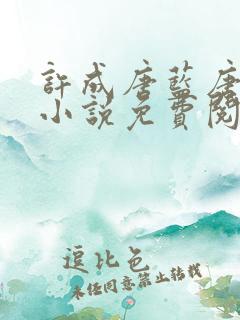 許成唐藍唐
小說免費閱
逗比色
未经同意禁止转载